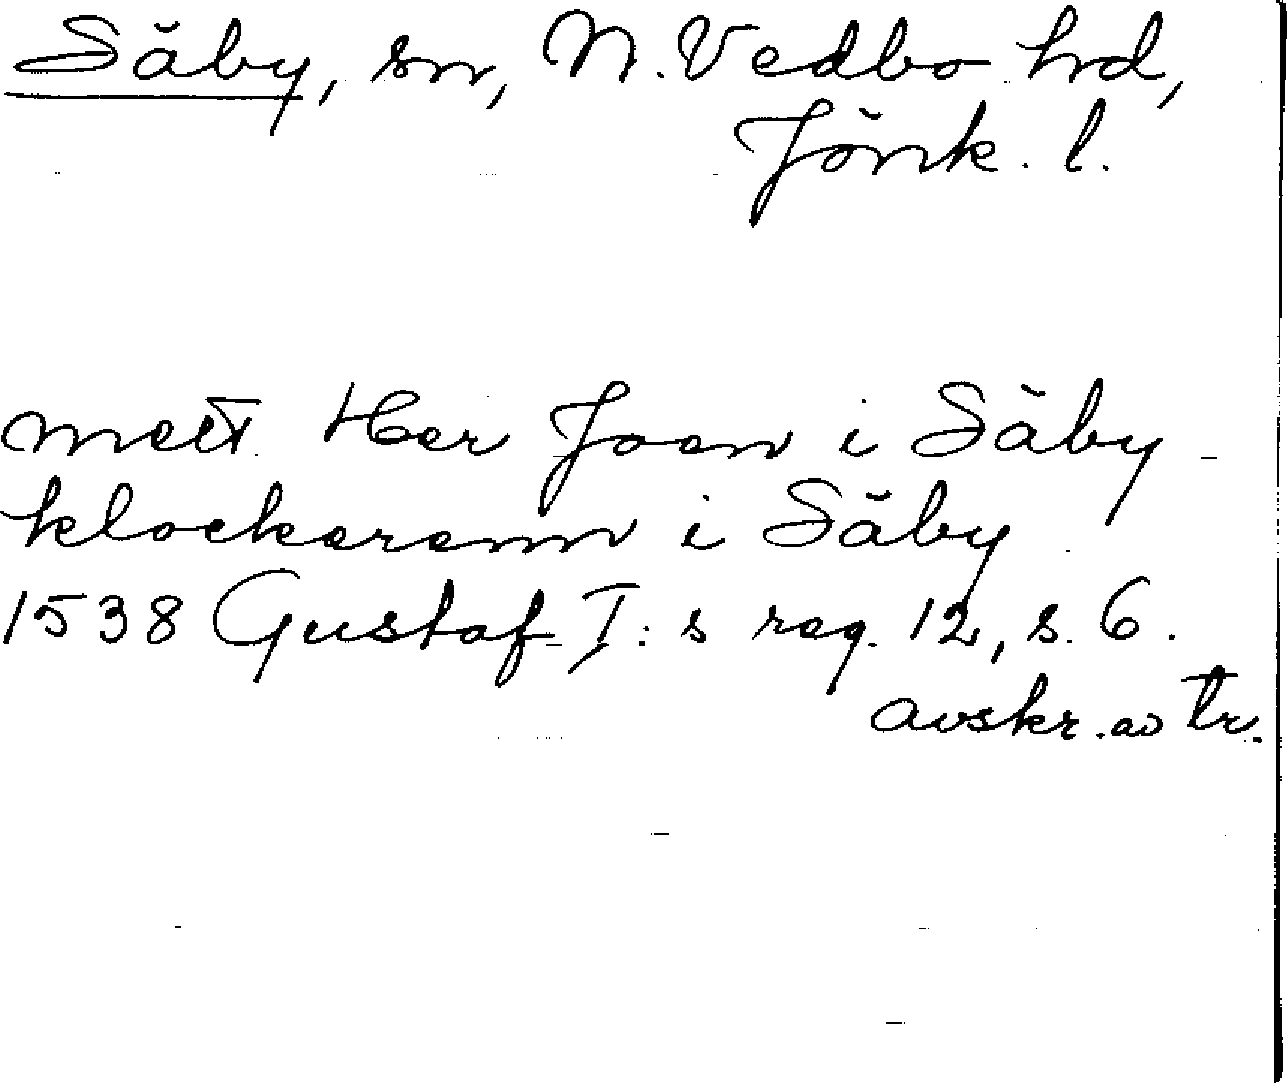 Säby, sn, N. Vedbo hd,
Jönk. l.
mett Her Joen i Säby
klockerenn i Säby
1538 Gustaf I:s reg. 12, s. 6.
avskr. av tr.